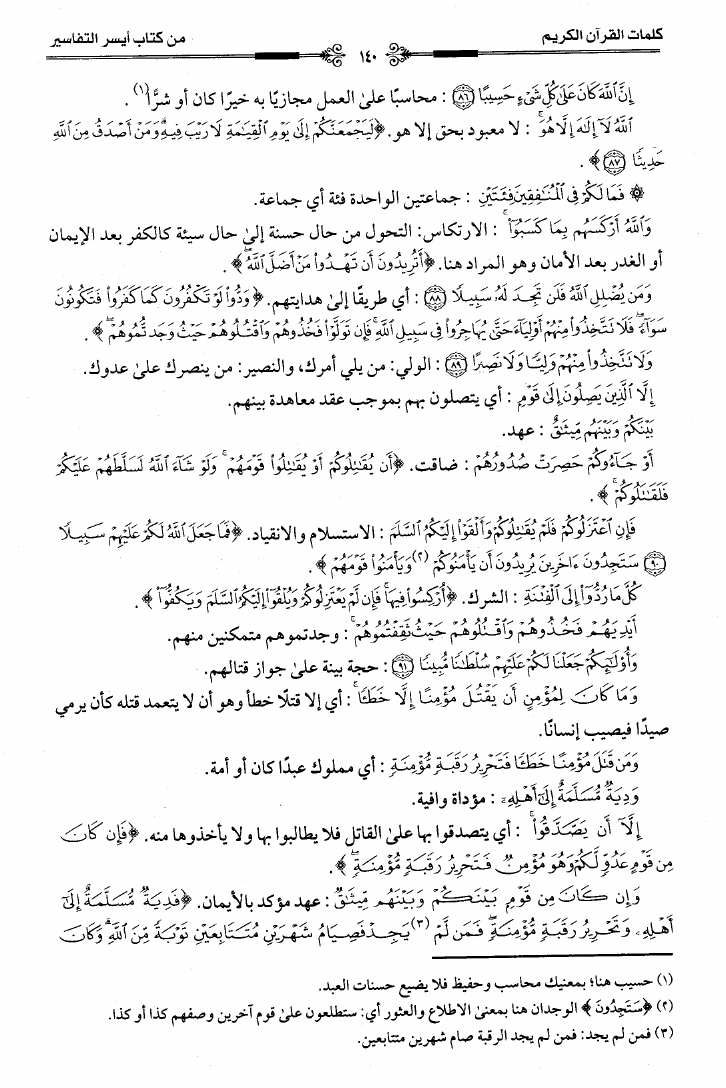 كلمات القرآن الكريم
١٤٠
من كتاب أيسر التفاسير
إِنَّ ٱللَّهَ كَانَ عَلَىٰ كُلِّ شَىْءٍ حَسِيبًا ٨٦ : محاسبًا علىٰ العمل مجازيًا به خيرًا كان أو شرًّا(١).
ٱللَّهُ لَآ إِلَٰهَ إِلَّا هُوَ ۚ : لا معبود بحق إلا هو. ﴿لَيَجْمَعَنَّكُمْ إِلَىٰ يَوْمِ ٱلْقِيَٰمَةِ لَا رَيْبَ فِيهِ ۗ وَمَنْ أَصْدَقُ مِنَ ٱللَّهِ
حَدِيثًا ٨٧﴾.
۞ فَمَا لَكُمْ فِى ٱلْمُنَٰفِقِينَ فِئَتَيْنِ : جماعتين الواحدة فئة أي جماعة.
وَٱللَّهُ أَرْكَسَهُم بِمَا كَسَبُوٓا۟ ۚ : الارتكاس: التحول من حال حسنة إلىٰ حال سيئة كالكفر بعد الإيمان
أو الغدر بعد الأمان وهو المراد هنا. ﴿أَتُرِيدُونَ أَن تَهْدُوا۟ مَنْ أَضَلَّ ٱللَّهُ ۖ﴾.
وَمَن يُضْلِلِ ٱللَّهُ فَلَن تَجِدَ لَهُۥ سَبِيلًا ٨٨ : أي طريقًا إلىٰ هدايتهم. ﴿وَدُّوا۟ لَوْ تَكْفُرُونَ كَمَا كَفَرُوا۟ فَتَكُونُونَ
سَوَآءً ۖ فَلَا تَتَّخِذُوا۟ مِنْهُمْ أَوْلِيَآءَ حَتَّىٰ يُهَاجِرُوا۟ فِى سَبِيلِ ٱللَّهِ ۚ فَإِن تَوَلَّوْا۟ فَخُذُوهُمْ وَٱقْتُلُوهُمْ حَيْثُ وَجَدتُّمُوهُمْ ۖ﴾.
وَلَا تَتَّخِذُوا۟ مِنْهُمْ وَلِيًّا وَلَا نَصِيرًا ٨٩ : الولي: من يلي أمرك، والنصير: من ينصرك علىٰ عدوك.
إِلَّا ٱلَّذِينَ يَصِلُونَ إِلَىٰ قَوْمٍۭ : أي يتصلون بهم بموجب عقد معاهدة بينهم.
بَيْنَكُمْ وَبَيْنَهُم مِّيثَٰقٌ : عهد.
أَوْ جَآءُوكُمْ حَصِرَتْ صُدُورُهُمْ : ضاقت. ﴿أَن يُقَٰتِلُوكُمْ أَوْ يُقَٰتِلُوا۟ قَوْمَهُمْ ۚ وَلَوْ شَآءَ ٱللَّهُ لَسَلَّطَهُمْ عَلَيْكُمْ
فَلَقَٰتَلُوكُمْ ۚ﴾.
فَإِنِ ٱعْتَزَلُوكُمْ فَلَمْ يُقَٰتِلُوكُمْ وَأَلْقَوْا۟ إِلَيْكُمُ ٱلسَّلَمَ : الاستسلام والانقياد. ﴿فَمَا جَعَلَ ٱللَّهُ لَكُمْ عَلَيْهِمْ سَبِيلًا
٩٠ سَتَجِدُونَ ءَاخَرِينَ يُرِيدُونَ أَن يَأْمَنُوكُمْ (٢) وَيَأْمَنُوا۟ قَوْمَهُمْ﴾.
كُلَّ مَا رُدُّوٓا۟ إِلَى ٱلْفِتْنَةِ : الشرك. ﴿أُرْكِسُوا۟ فِيهَا ۚ فَإِن لَّمْ يَعْتَزِلُوكُمْ وَيُلْقُوٓا۟ إِلَيْكُمُ ٱلسَّلَمَ وَيَكُفُّوٓا۟﴾.
أَيْدِيَهُمْ فَخُذُوهُمْ وَٱقْتُلُوهُمْ حَيْثُ ثَقِفْتُمُوهُمْ ۚ : وجدتموهم متمكنين منهم.
وَأُو۟لَٰٓئِكُمْ جَعَلْنَا لَكُمْ عَلَيْهِمْ سُلْطَٰنًا مُّبِينًا ٩١ : حجة بينة علىٰ جواز قتالهم.
وَمَا كَانَ لِمُؤْمِنٍ أَن يَقْتُلَ مُؤْمِنًا إِلَّا خَطَـًٔا ۚ : أي إلا قتلًا خطأ وهو أن لا يتعمد قتله كأن يرمي
صيدًا فيصيب إنسانًا.
وَمَن قَتَلَ مُؤْمِنًا خَطَـًٔا فَتَحْرِيرُ رَقَبَةٍ مُّؤْمِنَةٍ : أي مملوك عبدًا كان أو أمة.
وَدِيَةٌ مُّسَلَّمَةٌ إِلَىٰٓ أَهْلِهِۦٓ : مؤداة وافية.
إِلَّآ أَن يَصَّدَّقُوا۟ ۚ : أي يتصدقوا بها علىٰ القاتل فلا يطالبوا بها ولا يأخذوها منه. ﴿فَإِن كَانَ
مِن قَوْمٍ عَدُوٍّ لَّكُمْ وَهُوَ مُؤْمِنٌ فَتَحْرِيرُ رَقَبَةٍ مُّؤْمِنَةٍ ۖ﴾.
وَإِن كَانَ مِن قَوْمٍۭ بَيْنَكُمْ وَبَيْنَهُم مِّيثَٰقٌ : عهد مؤكد بالأيمان. ﴿فَدِيَةٌ مُّسَلَّمَةٌ إِلَىٰٓ
أَهْلِهِۦ وَتَحْرِيرُ رَقَبَةٍ مُّؤْمِنَةٍ ۖ فَمَن لَّمْ (٣) يَجِدْ فَصِيَامُ شَهْرَيْنِ مُتَتَابِعَيْنِ تَوْبَةً مِّنَ ٱللَّهِ ۗ وَكَانَ
(١) حسيب هنا؛ بمعنيك محاسب وحفيظ فلا يضيع حسنات العبد.
(٢) ﴿سَتَجِدُونَ﴾ الوجدان هنا بمعنىٰ الاطلاع والعثور أي: ستطلعون علىٰ قوم آخرين وصفهم كذا أو كذا.
(٣) فمن لم يجد: فمن لم يجد الرقبة صام شهرين متتابعين.